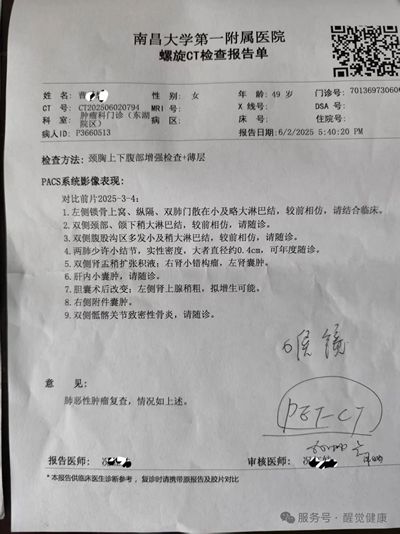 南昌大学第一附属医院
螺旋CT检查报告单
姓 名: 曹 性 别: 女 年 龄: 49 岁 门诊号: 70136973060
CT 号: CT202506020794 MRI号: X 线号: DSA 号:
科 室: 肿瘤科门诊(东湖院区) 病 区: 床 号: 住院号:
病人ID: P3660513 报告日期: 6/2/2025 5:40:20 PM
检查方法: 颈胸上下腹部增强检查+薄层
PACS系统影像表现:
对比前片2025-3-4:
1.左侧锁骨上窝、纵隔、双肺门散在小及略大淋巴结,较前相仿,请结合临床。
2.双侧颈部、颌下稍大淋巴结,较前相仿,请随诊。
3.双侧腹股沟区多发小及稍大淋巴结,较前相仿,请随诊。
4.两肺少许小结节,实性密度,大者直径约0.4cm,可年度随诊。
5.双侧肾盂稍扩张积液;右肾小错构瘤,左肾囊肿。
6.肝内小囊肿,请随诊。
7.胆囊术后改变;左侧肾上腺稍粗,拟增生可能。
8.右侧附件囊肿。
9.双侧骶髂关节致密性骨炎,请随诊。
喉镜
意 见:
肺恶性肿瘤复查,情况如上述。
PET-CT
报告医师: 况 审核医师:
*本报告供临床医生诊断参考,复诊时请携带原报告及胶片对比
服务号·醒觉健康